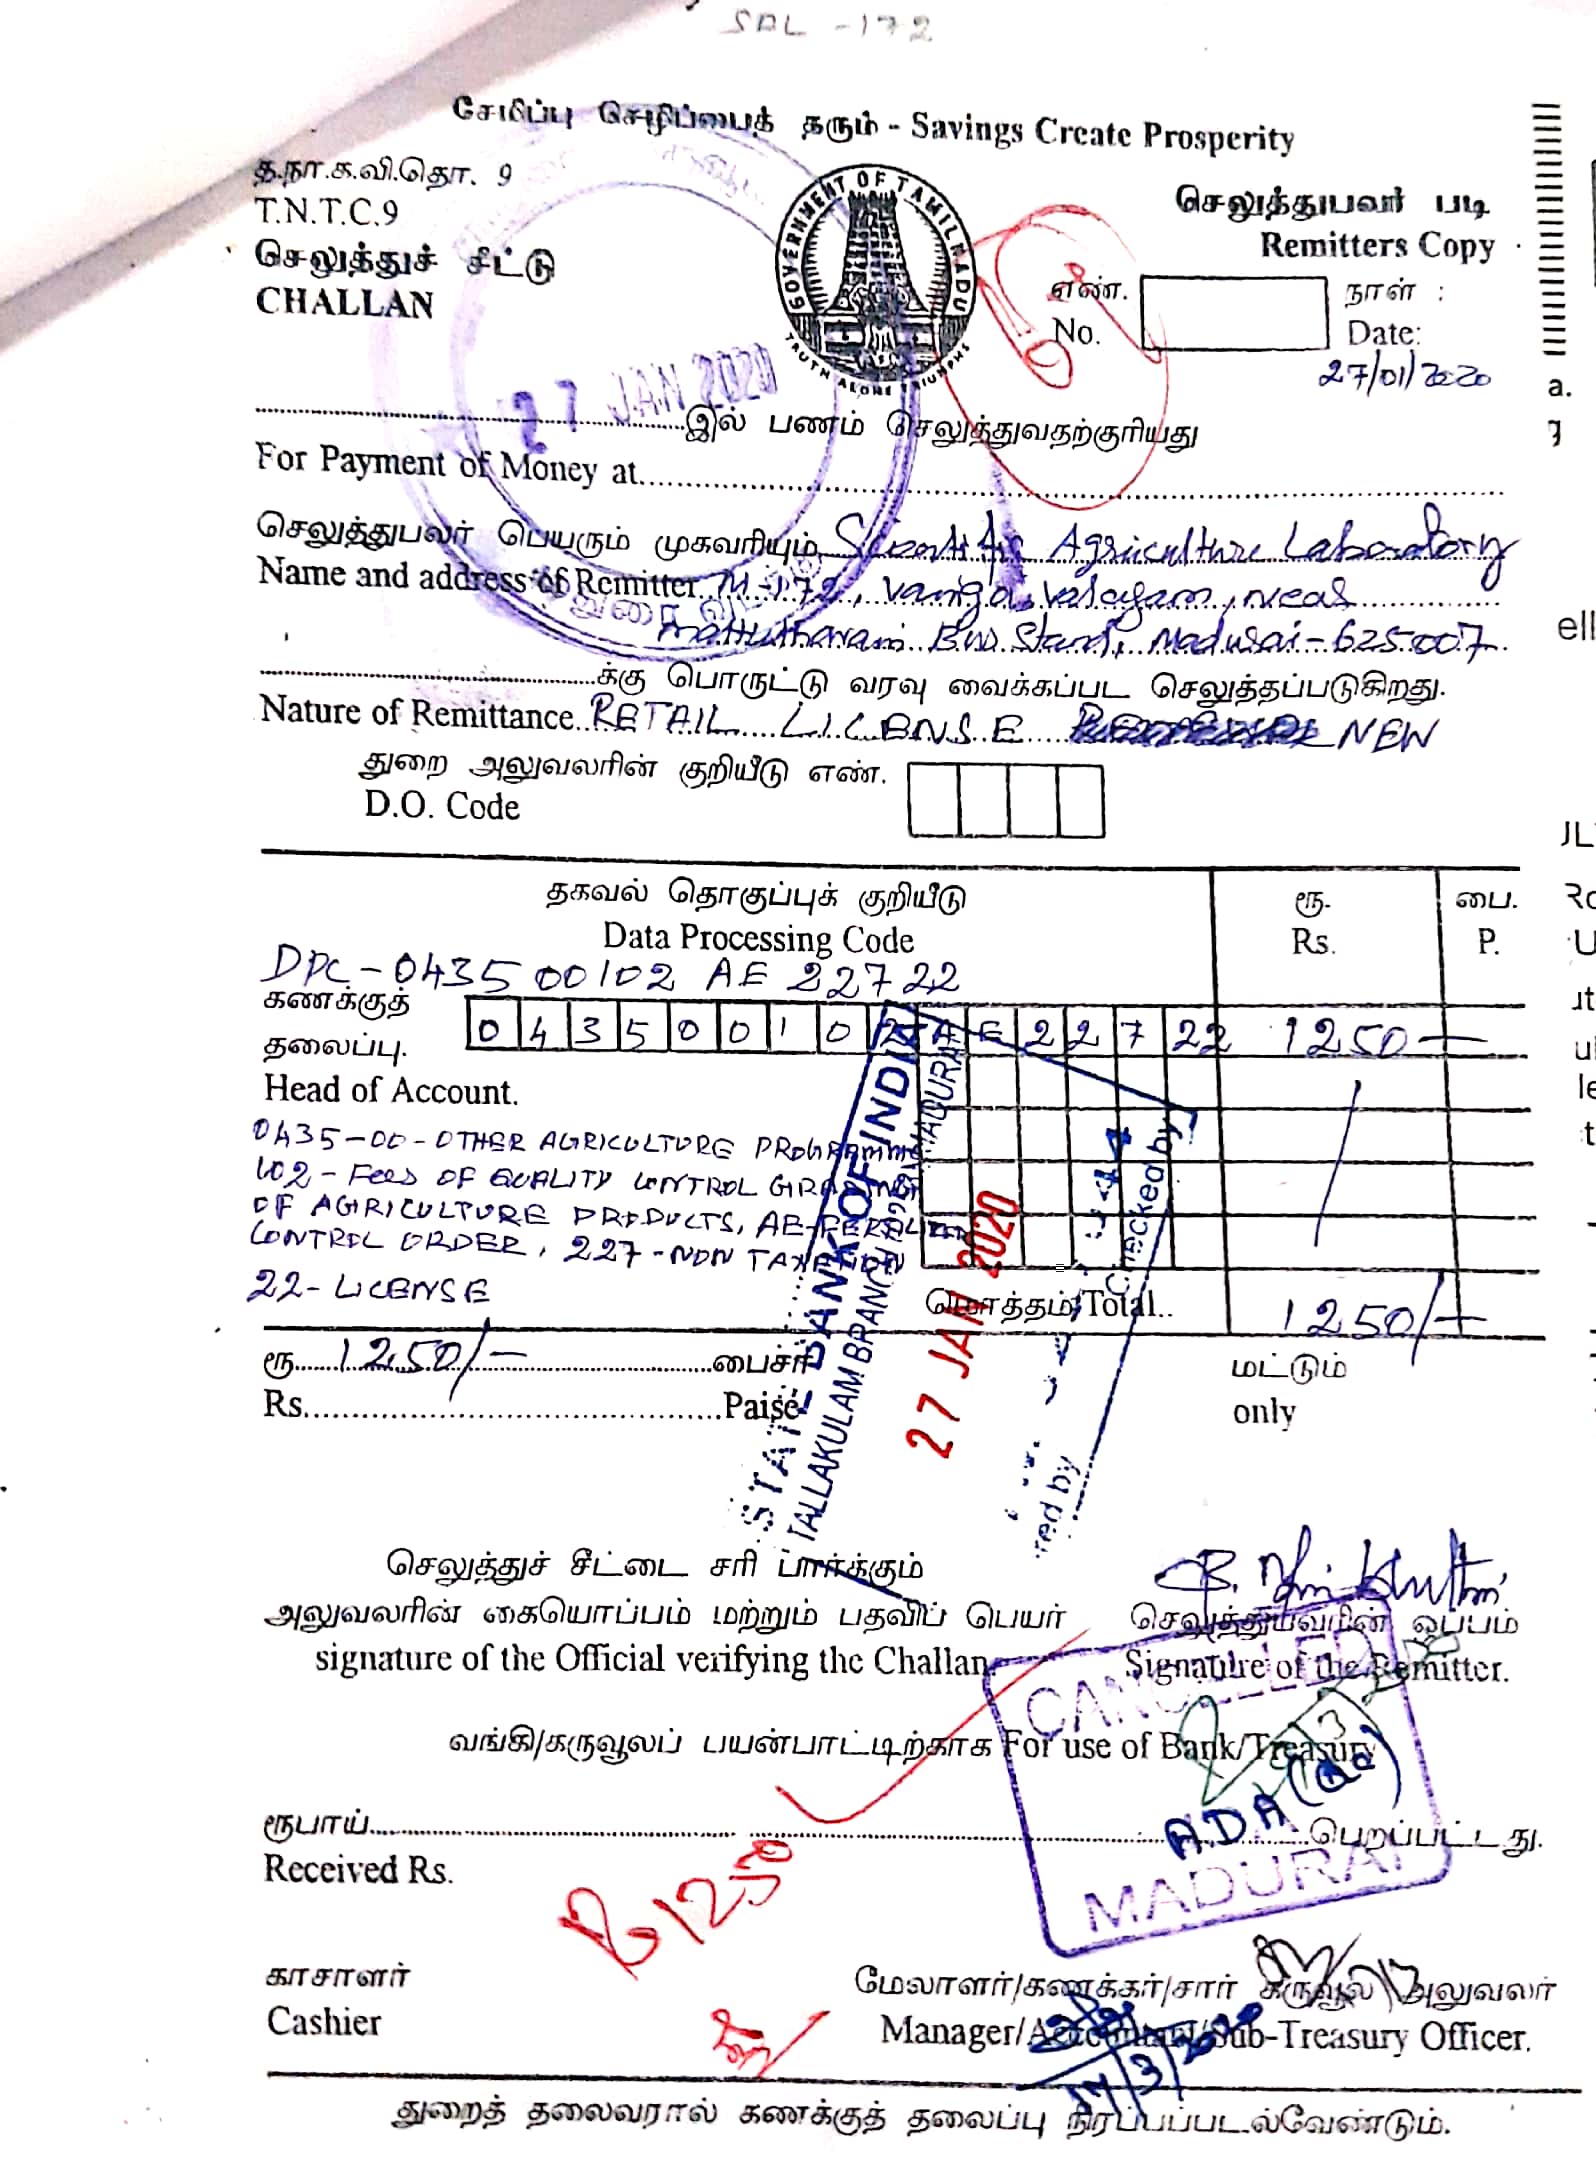 SDL -172
சேமிப்பு செழிப்பைத் தரும் - Savings Create Prosperity
த.நா.க.வி.தொ. 9
T.N.T.C.9
செலுத்துச் சீட்டு
CHALLAN
GOVERNMENT OF TAMILNADU
TRUTH ALONE TRIUMPHS
செலுத்துபவர் படி
Remitters Copy
எண்.
No.
நாள் :
Date:
27/01/2020
27 JAN 2020
இல் பணம் செலுத்துவதற்குரியது
For Payment of Money at
செலுத்துபவர் பெயரும் முகவரியும் Scientific Agriculture Laboratory
Name and address of Remitter M-172, Vanga Valagam, near
mattuthavani Bus Stand, Madurai-625007
க்கு பொருட்டு வரவு வைக்கப்பட செலுத்தப்படுகிறது.
Nature of Remittance RETAIL LICENSE NEW
துறை அலுவலரின் குறியீடு எண்.
D.O. Code
தகவல் தொகுப்புக் குறியீடு
Data Processing Code
ரூ.
Rs.
பை.
P.
DPC-043500102 AE 22722
கணக்குத்
தலைப்பு.
0 4 3 5 0 0 1 0 2 A E 2 2 7 22 1250
Head of Account.
0435-00-OTHER AGRICULTURE PROGRAMME
102-FEES OF QUALITY CONTROL GRADING
OF AGRICULTURE PRODUCTS, AE-FERTILIZER
CONTROL ORDER, 227-NON TAXATION
22-LICENSE
மொத்தம்/Total.. 1250/-
ரூ 1250/- பைசா
Rs. Paise
மட்டும்
only
STATE BANK OF INDIA
TALLAKULAM BRANCH MADURAI
27 JAN 2020
Checked by
செலுத்துச் சீட்டை சரி பார்க்கும்
அலுவலரின் கையொப்பம் மற்றும் பதவிப் பெயர்
signature of the Official verifying the Challan
செலுத்துபவரின் ஒப்பம்
Signature of the Remitter.
CANCELLED
MADURAI
வங்கி/கருவூலப் பயன்பாட்டிற்காக For use of Bank/Treasury
A.D.A
ரூபாய் பெறப்பட்டது.
Received Rs.
1250
காசாளர்
Cashier
மேலாளர்/கணக்கர்/சார் கருவூல அலுவலர்
Manager/Accountant/Sub-Treasury Officer.
துறைத் தலைவரால் கணக்குத் தலைப்பு நிரப்பப்படல்வேண்டும்.